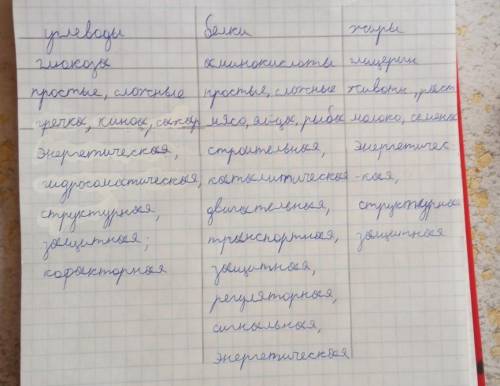 углеводы белки жиры
глюкоза аминокислоты глицерин
простые, сложные простые, сложные животн, раст
гречка, киноа, сахар мясо, яйца, рыба молоко, семена
энергетическая, строительная, энергетичес-
гидроосмотическая, каталитическая -кая,
структурная, двигательная, структурная
защитная; транспортная, защитная
кофакторная защитная,
регуляторная,
сигнальная,
энергетическая